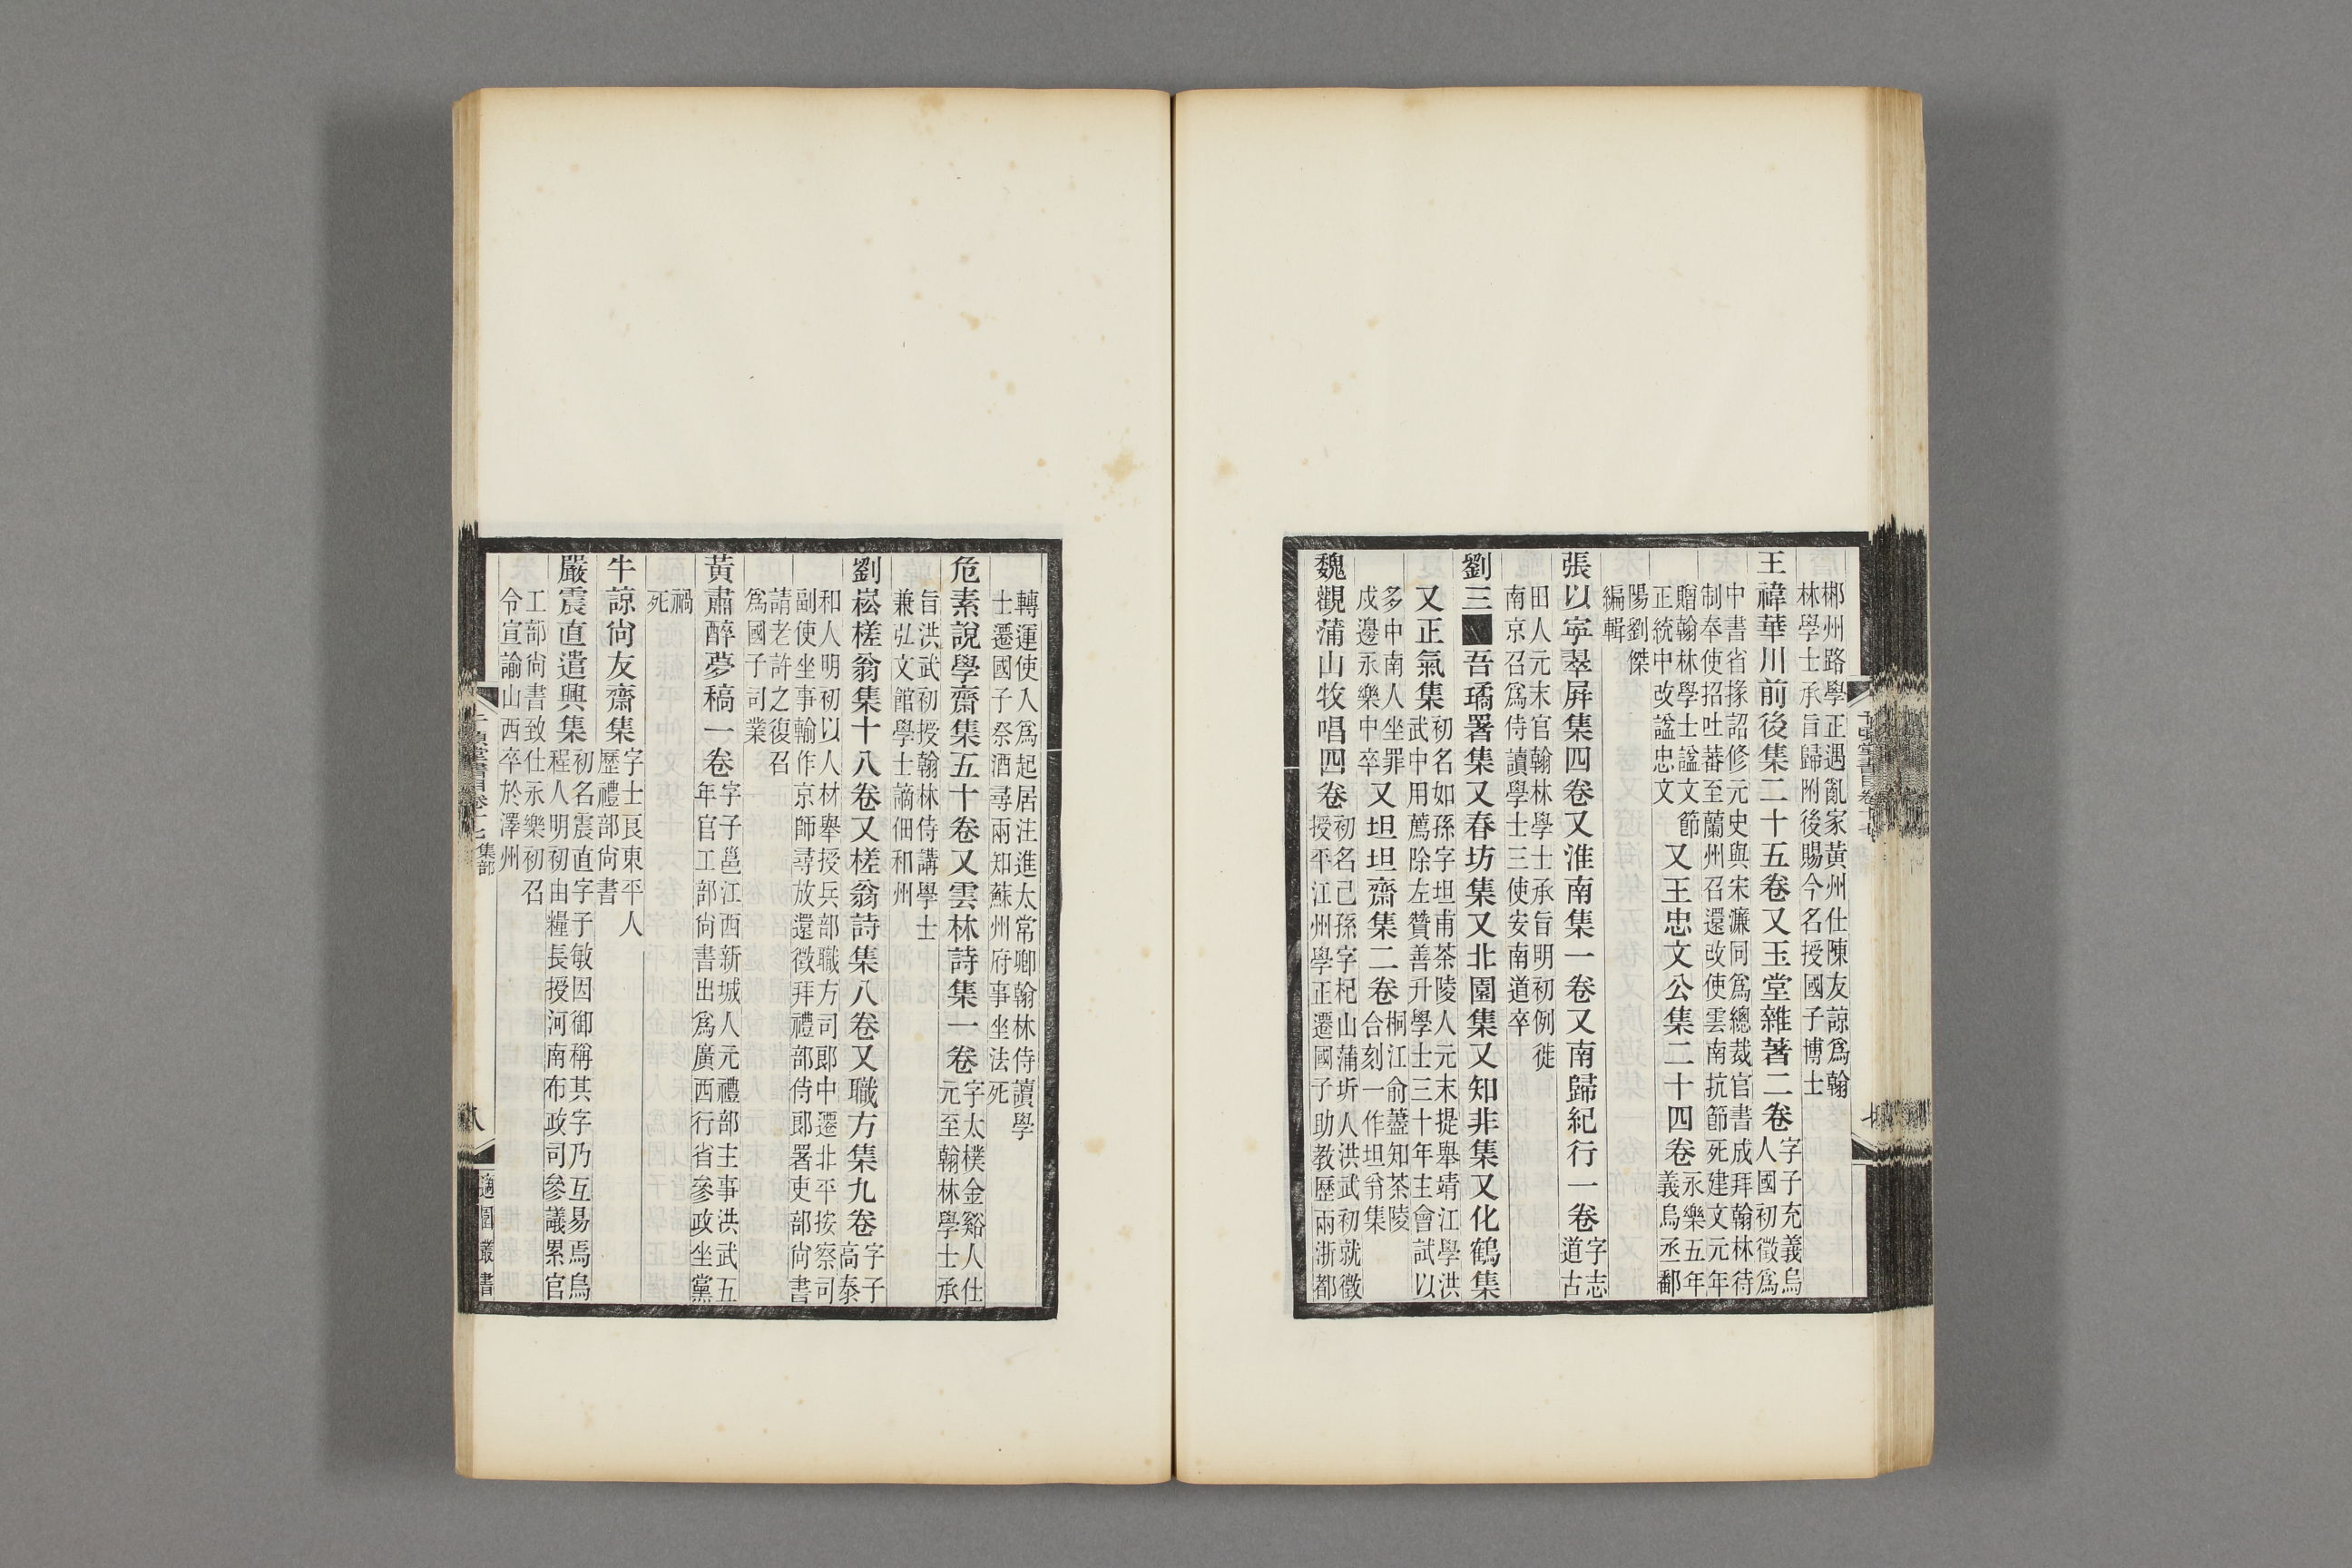 郴州路學正遇亂家黃州仕陳友諒爲翰
林學士承旨歸附後賜今名授國子博士
王褘華川前後集二十五卷又玉堂雜著二卷字子充義烏
人國初徵爲
中書省掾詔修元史與宋濂同爲總裁官書成拜翰林待
制奉使招吐蕃至蘭州召還改使雲南抗節死建文元年
贈翰林學士諡文節
正統中改諡忠文
又王忠文公集二十四卷永樂五年
義烏丞鄱
陽劉傑
編輯
張以寧翠屛集四卷又淮南集一卷又南歸紀行一卷字志
道古
田人元末官翰林學士承旨明初例徙
南京召爲侍讀學士三使安南道卒
劉三吾璚署集又春坊集又北園集又知非集又化鶴集
又正氣集初名如孫字坦甫茶陵人元末提舉靖江學洪
武中用薦除左贊善升學士三十年主會試以
多中南人坐罪
戍邊永樂中卒
又坦坦齋集二卷桐江俞藎知茶陵
合刻一作坦翁集
魏觀蒲山牧唱四卷初名己孫字杞山蒲圻人洪武初就徵
授平江州學正遷國子助教歷兩浙都
千頃堂書目卷十七
七
轉運使入爲起居注進太常卿翰林侍讀學
士遷國子祭酒尋兩知蘇州府事坐法死
危素說學齋集五十卷又雲林詩集一卷字太樸金谿人仕
元至翰林學士承
旨洪武初授翰林侍講學士
兼弘文館學士謫佃和州
劉崧槎翁集十八卷又槎翁詩集八卷又職方集九卷字子
高泰
和人明初以人材舉授兵部職方司郎中遷北平按察司
副使坐事輸作京師尋放還徵拜禮部侍郎署吏部尙書
請老許之復召
爲國子司業
黃肅醉夢稿一卷字子邕江西新城人元禮部主事洪武五
年官工部尙書出爲廣西行省參政坐黨
禍
死
牛諒尙友齋集字士良東平人
歷禮部尙書
嚴震直遣興集初名震直字子敏因御稱其字乃互易焉烏
程人明初由糧長授河南布政司參議累官
工部尙書致仕永樂初召
令宣諭山西卒於澤州
千頃堂書目卷十七 集部
八
適園叢書